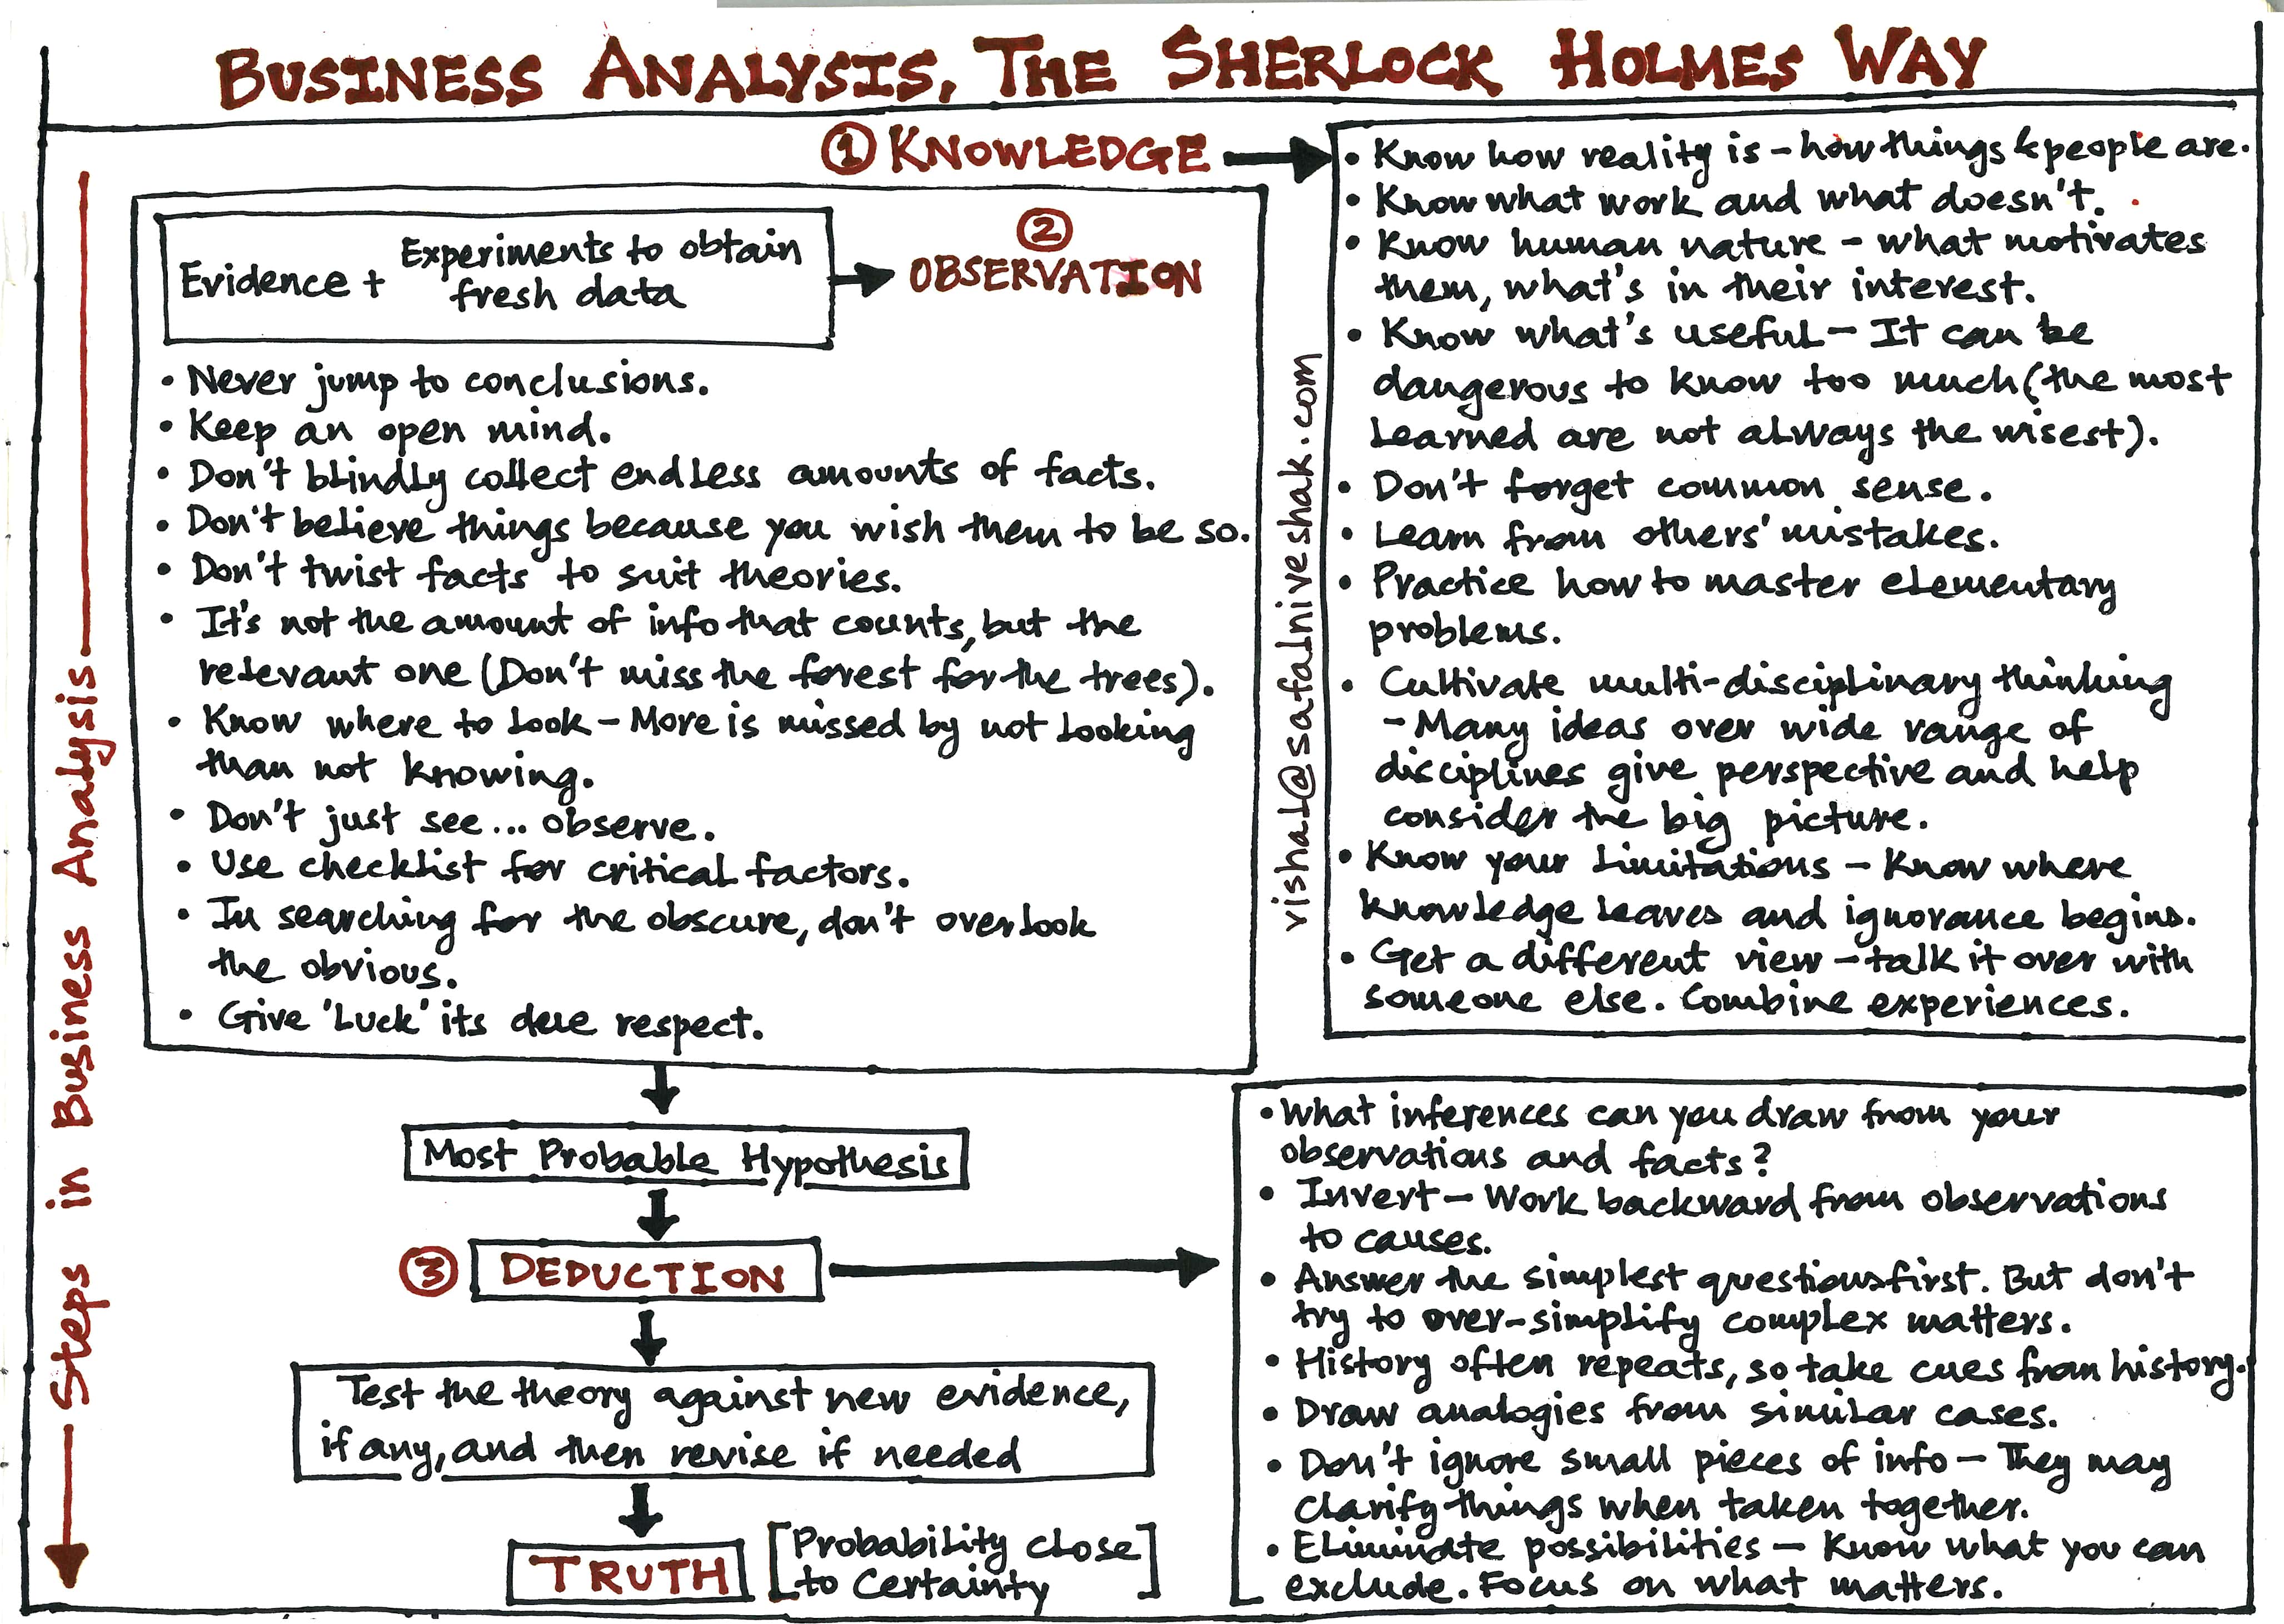 BUSINESS ANALYSIS, THE SHERLOCK HOLMES WAY
① KNOWLEDGE
• Know how reality is – how things & people are.
• Know what work and what doesn't.
• Know human nature – what motivates
them, what's in their interest.
• Know what's useful – It can be
dangerous to know too much (the most
Learned are not always the wisest).
• Don't forget common sense.
• Learn from others' mistakes.
• Practice how to master elementary
problems.
• Cultivate multi-disciplinary thinking
- Many ideas over wide range of
disciplines give perspective and help
consider the big picture.
• Know your Limitations – Know where
knowledge leaves and ignorance begins.
• Get a different view – talk it over with
someone else. Combine experiences.
Evidence + Experiments to obtain
fresh data
②
OBSERVATION
• Never jump to conclusions.
• Keep an open mind.
• Don't blindly collect endless amounts of facts.
• Don't believe things because you wish them to be so.
• Don't twist facts to suit theories.
• It's not the amount of info that counts, but the
relevant one (Don't miss the forest for the trees).
• Know where to Look – More is missed by not Looking
than not knowing.
• Don't just see... observe.
• Use checklist for critical factors.
• In searching for the obscure, don't overlook
the obvious.
• Give 'Luck' its due respect.
vishal@safalniveshak.com
Steps in Business Analysis
Most Probable Hypothesis
③ DEDUCTION
• What inferences can you draw from your
observations and facts?
• Invert – Work backward from observations
to causes.
• Answer the simplest questions first. But don't
try to over-simplify complex matters.
• History often repeats, so take cues from history.
• Draw analogies from similar cases.
• Don't ignore small pieces of info – They may
clarify things when taken together.
• Eliminate possibilities – Know what you can
exclude. Focus on what matters.
Test the theory against new evidence,
if any, and then revise if needed
TRUTH [Probability close
to Certainty]